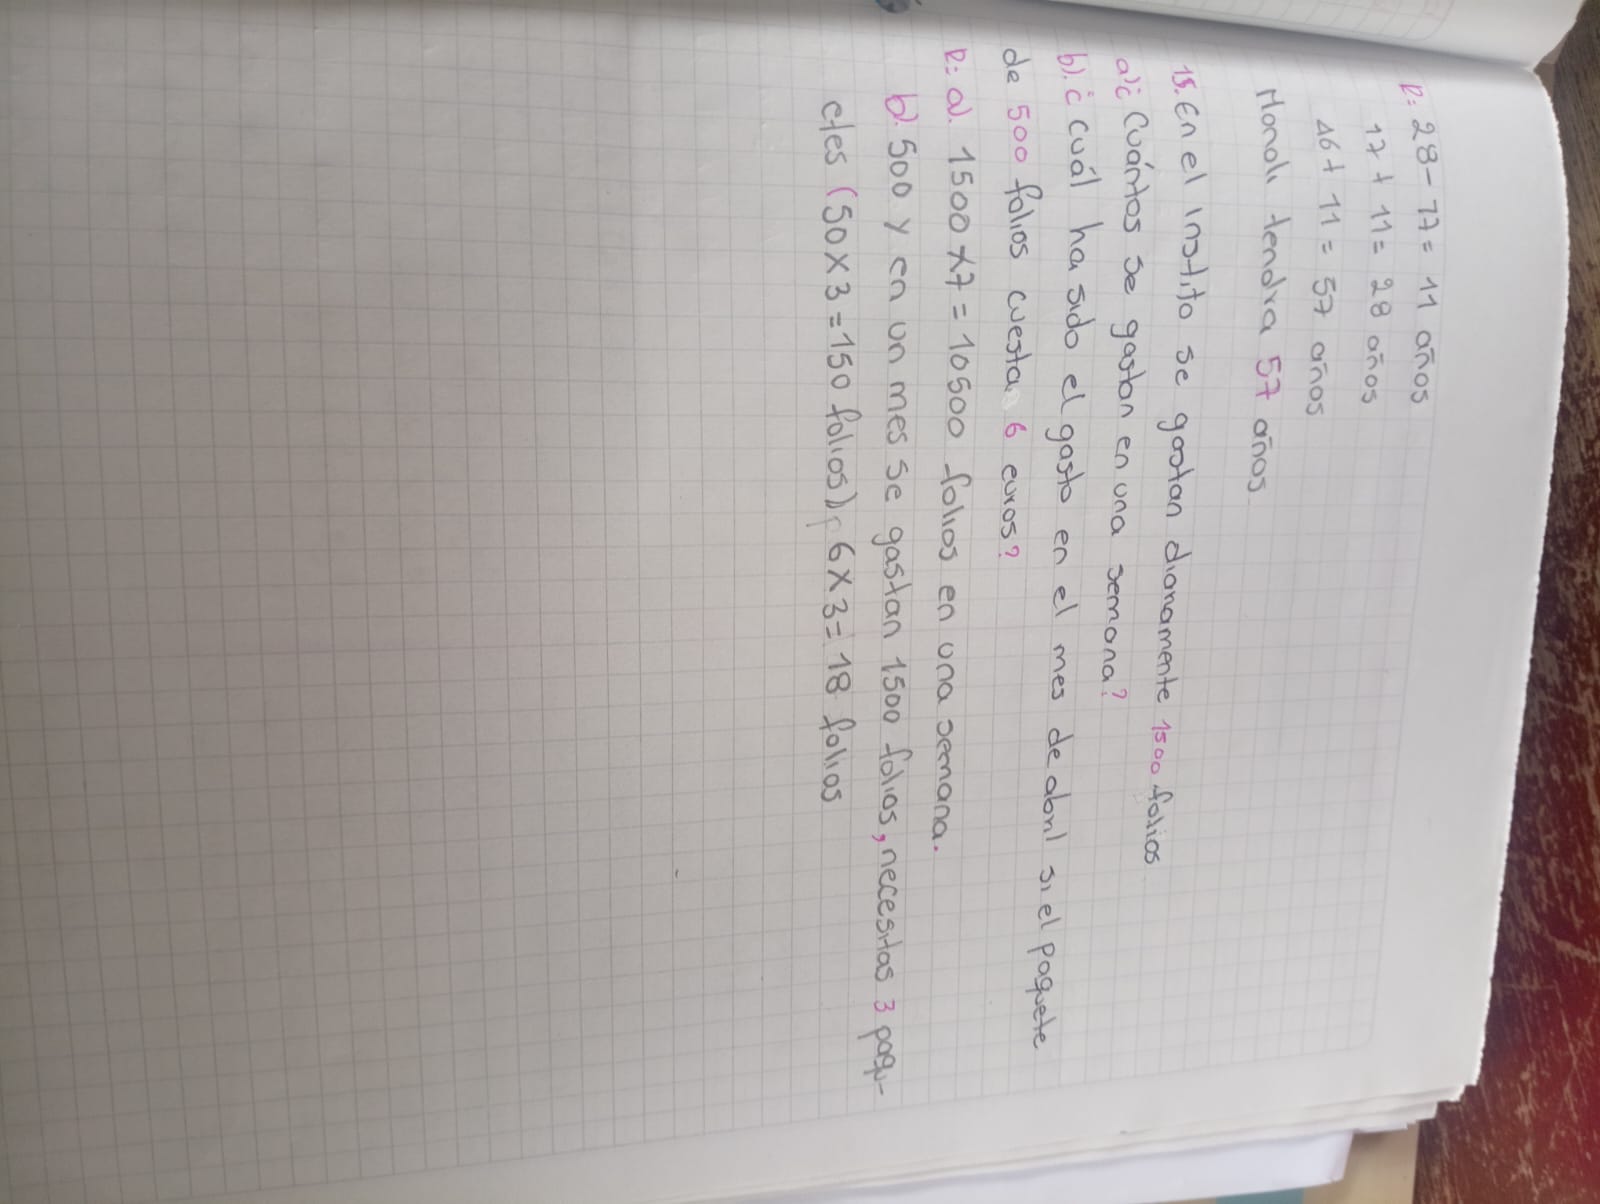 R: 28-17= 11 años
17 + 11= 28 años
46+ 11= 57 años
Mamá tendra 57 años
15. En el Instito se gastan diariamente 1500 folios
a) ¿Cuántos se gastan en una semana?
b). ¿cuál ha sido el gasto en el mes de abril si el paquete
de 500 folios cuesta 6 euros?
R: a). 1500x7=10500 folios en una semana.
b). 500 y en un mes se gastan 1500 folios, necesitas 3 paqu-
etes (50x3=150 folios), 6x3=18 folios